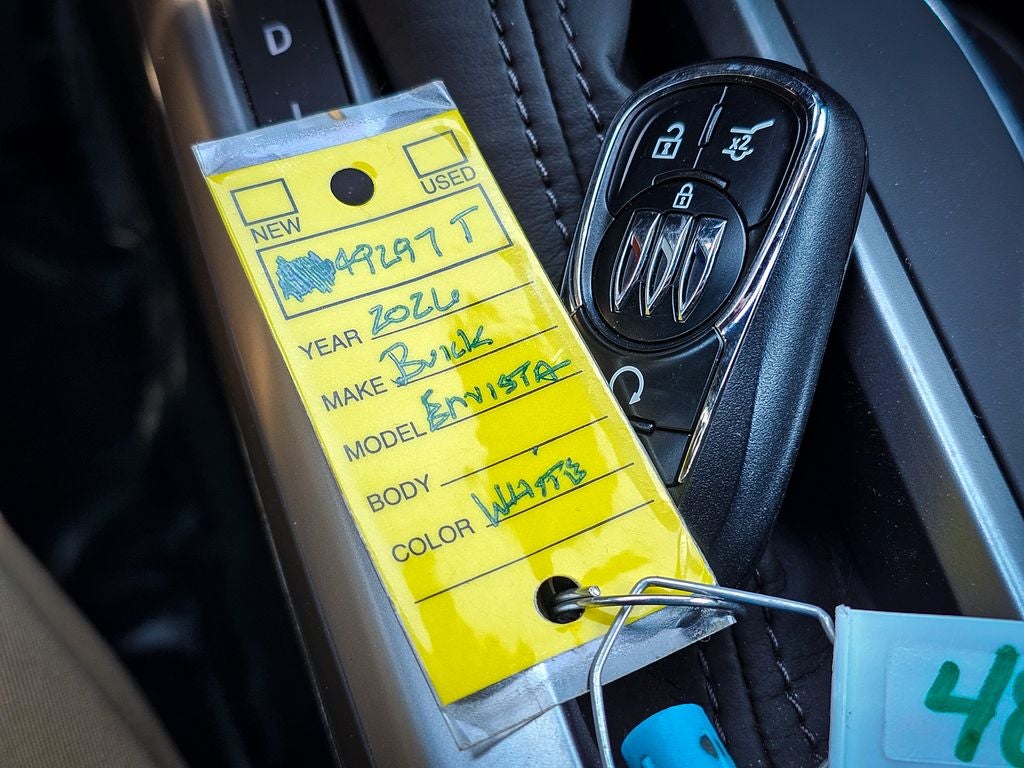 D
NEW USED
49297 T
YEAR 2026
MAKE Buick
MODEL EnVISTA
BODY
COLOR WHITE
x2
48